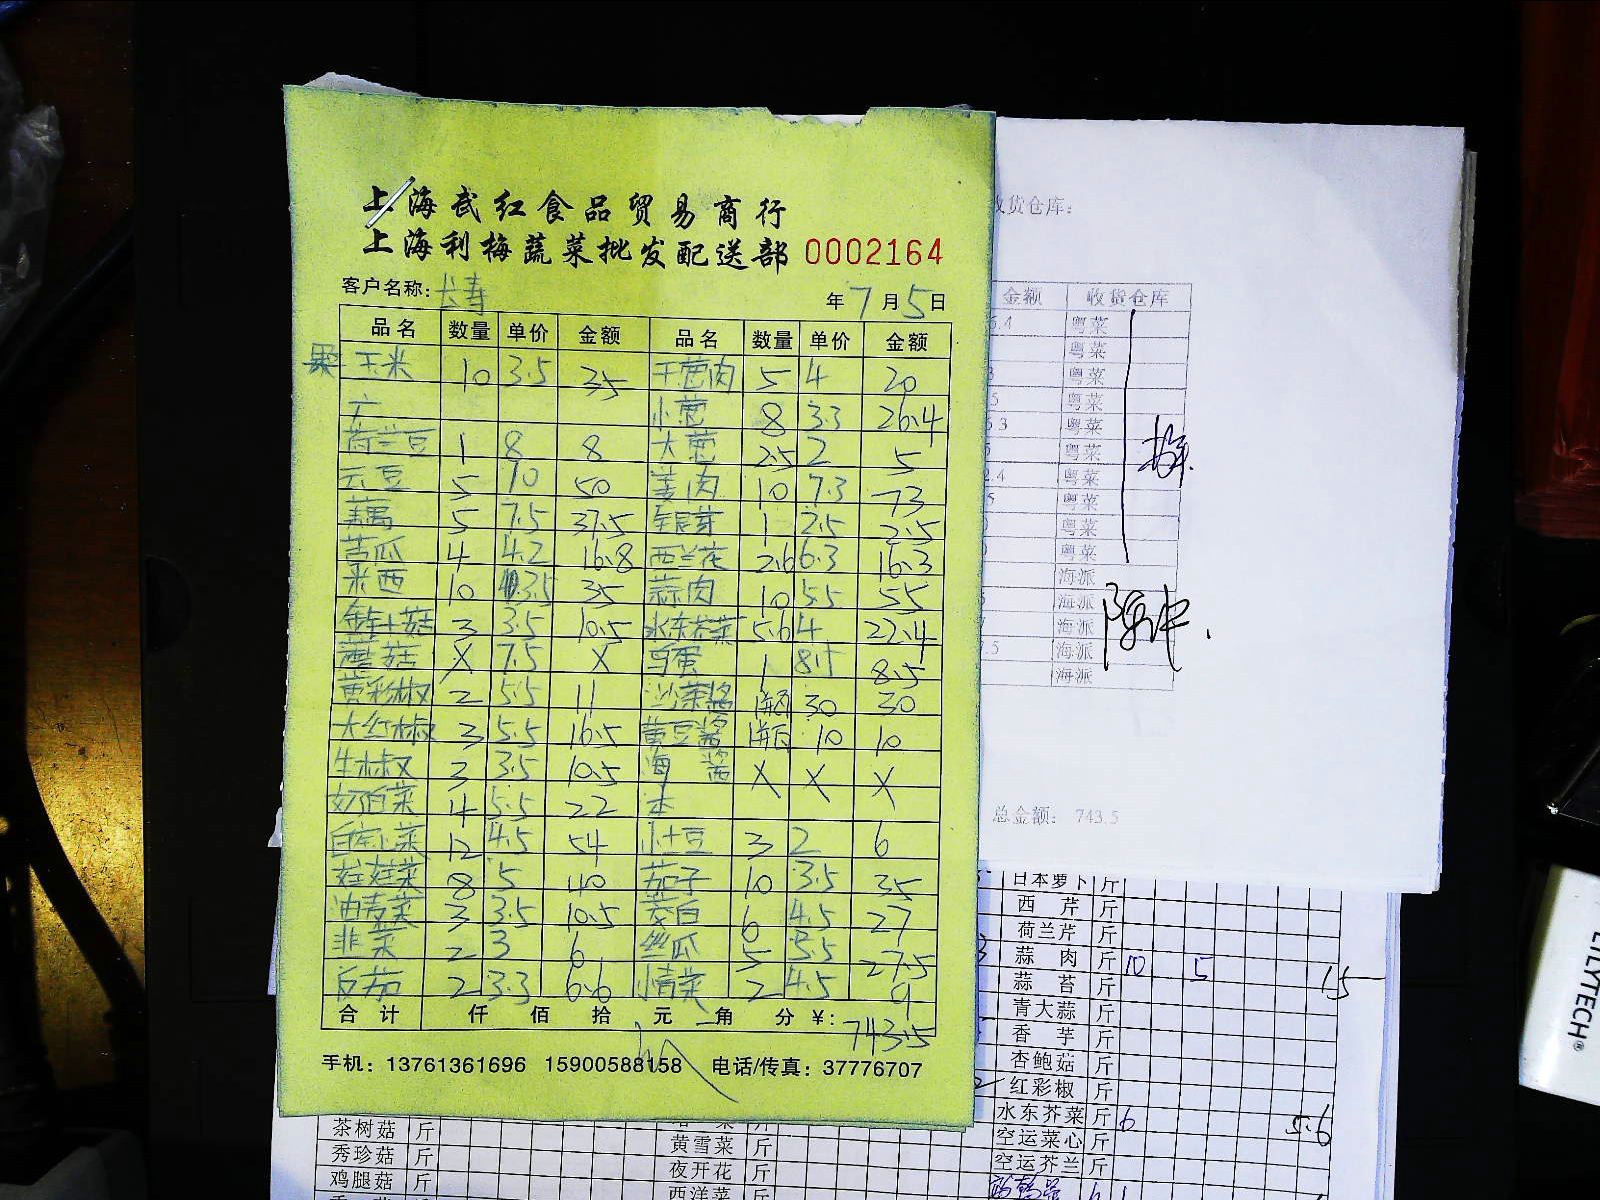 上海武红食品贸易商行
上海利梅蔬菜批发配送部 0002164
客户名称: 长寿 年 7 月 5 日
品名 数量 单价 金额 品名 数量 单价 金额
玉米 10 3.5 35 干葱肉 5 4 20
六 小葱 8 3.3 26.4
荷兰豆 1 8 8 大葱 2.5 2 5
云豆 5 10 50 姜肉 10 7.3 73
藕 5 7.5 37.5 1 2.5 2.5
苦瓜 4 4.2 16.8 西兰花 2.6 6.3 16.3
米西 10 3.5 35 蒜肉 10 5.5 55
3 3.5 10.5 水东芥菜 5.6 4 22.4
蘑菇 X 7.5 X 鸟蛋 1 8.5 8.5
黄彩椒 2 5.5 11 沙茶酱 1瓶 30 30
大红椒 3 5.5 16.5 黄豆酱 1瓶 10 10
牛椒 3 3.5 10.5 海 酱 X X X
奶白菜 4 5.5 22 本
12 4.5 54 小土豆 3 2 6
娃娃菜 8 5 40 茄子 10 3.5 35
油麦菜 3 3.5 10.5 茭白 6 4.5 27
韭菜 2 3 6 丝瓜 5 5.5 27.5
反茄 2 3.3 6.6 2 4.5 9
合计 仟 佰 拾 元 角 分 ¥: 743.5
手机: 13761361696 15900588158 电话/传真: 37776707
收货仓库:
金额 收货仓库
粤菜
粤菜
粤菜
粤菜
粤菜
粤菜
粤菜
粤菜
粤菜
粤菜
海派
海派
海派
海派
海派
总金额: 743.5
日本萝卜 斤
西 芹 斤
荷兰芹 斤
蒜 肉 斤 10 5 15
蒜 苔 斤
青大蒜 斤
香 芋 斤
杏鲍菇 斤
红彩椒 斤
水东芥菜 斤 6 5.6
空运菜心 斤
空运芥兰 斤
茶树菇 斤
秀珍菇 斤
鸡腿菇 斤
黄雪菜 斤
夜开花 斤
西洋菜 斤
LILYTECH®